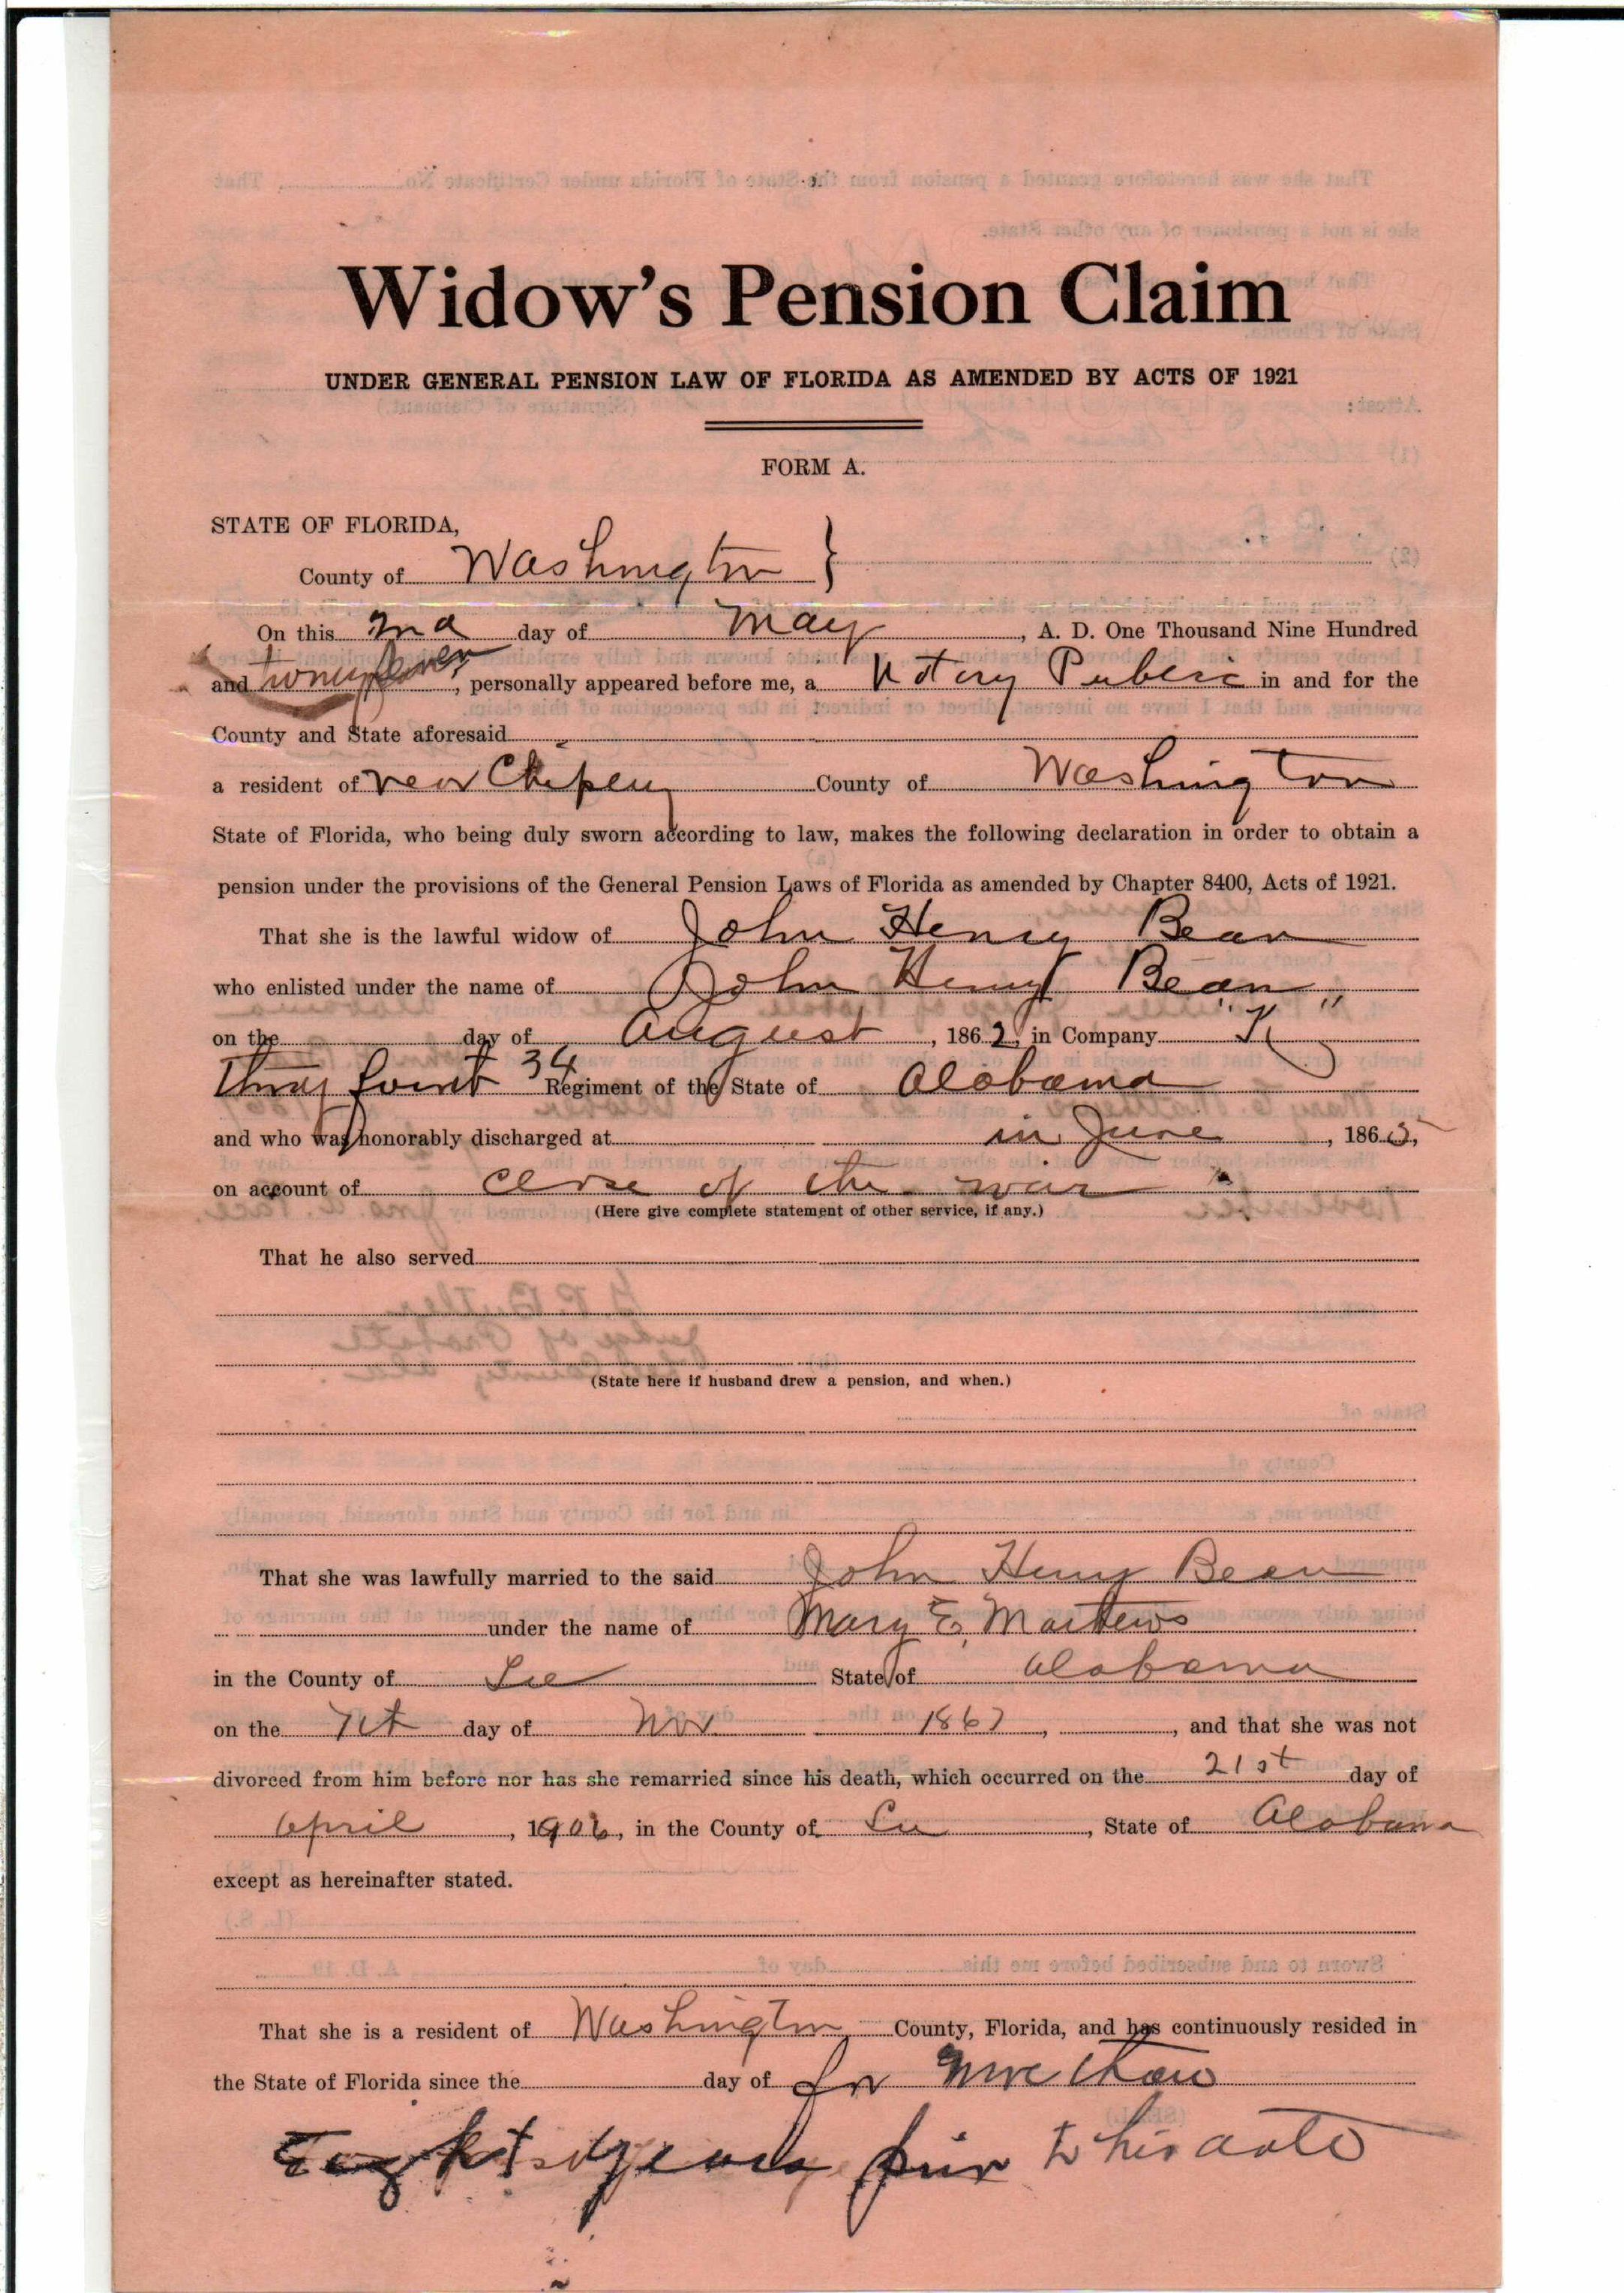 Widow's Pension Claim
UNDER GENERAL PENSION LAW OF FLORIDA AS AMENDED BY ACTS OF 1921
FORM A.
STATE OF FLORIDA,
County of Washington }
On this 2nd day of May, A. D. One Thousand Nine Hundred
and, personally appeared before me, a Notary Public in and for the
County and State aforesaid
a resident of near Chipley County of Washington
State of Florida, who being duly sworn according to law, makes the following declaration in order to obtain a
pension under the provisions of the General Pension Laws of Florida as amended by Chapter 8400, Acts of 1921.
That she is the lawful widow of John Henry Bean
who enlisted under the name of John Henry Bean
on the day of August, 1862, in Company "K"
34 Regiment of the State of Alabama
and who was honorably discharged at in June, 1865,
on account of close of the war
(Here give complete statement of other service, if any.)
That he also served
(State here if husband drew a pension, and when.)
That she was lawfully married to the said John Henry Bean
under the name of Mary E. Matthews
in the County of Lee State of Alabama
on the day of Nov 1867, , and that she was not
divorced from him before nor has she remarried since his death, which occurred on the 21st day of
April, 1906, in the County of Lee, State of Alabama
except as hereinafter stated.
That she is a resident of Washington County, Florida, and has continuously resided in
the State of Florida since the day of for more than
Eight years to this date